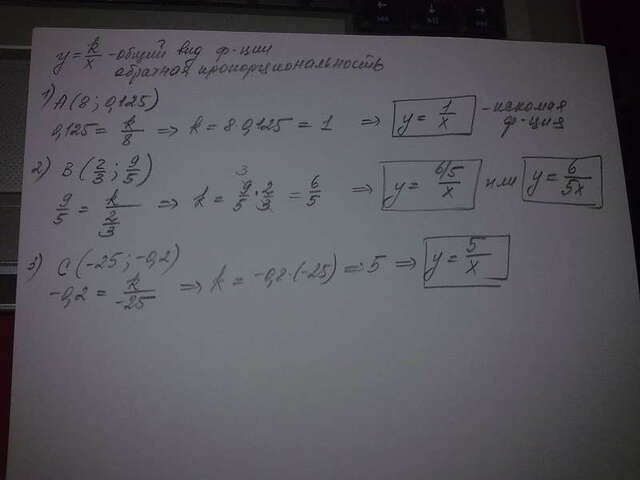 y = k/x - общий вид ф-ции
обратная пропорциональность
1) A (8; 0,125)
0,125 = k/8 => k = 8·0,125 = 1 => y = 1/x - искомая ф-ция
2) B (2/3; 9/5)
9/5 = k/(2/3) => k = 9/5 · 2/3 = 6/5 => y = (6/5)/x или y = 6/5x
3) C (-25; -0,2)
-0,2 = k/-25 => k = -0,2·(-25) = 5 => y = 5/x